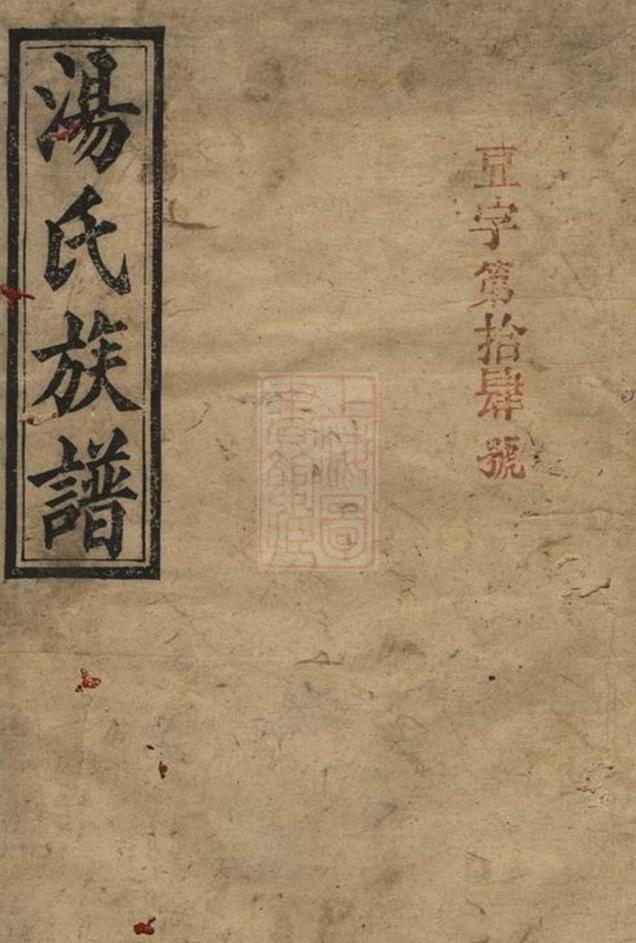 亘字第拾肆號
上海圖書館藏
湯氏族譜